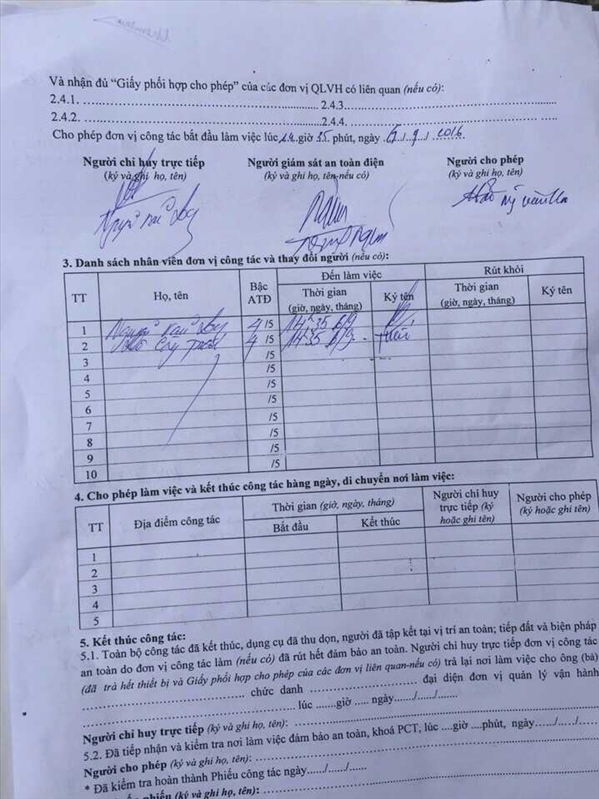 Và nhận đủ “Giấy phối hợp cho phép” của các đơn vị QLVH có liên quan (nếu có):
2.4.1. ........................................ 2.4.3........................................
2.4.2. ........................................ 2.4.4. ........................................
Cho phép đơn vị công tác bắt đầu làm việc lúc 14 giờ 35 phút, ngày 6/9/2016
Người chỉ huy trực tiếp Người giám sát an toàn điện Người cho phép
(ký và ghi họ, tên) (ký và ghi họ, tên-nếu có) (ký và ghi họ, tên)
3. Danh sách nhân viên đơn vị công tác và thay đổi người (nếu có):
TT Họ, tên Bậc ATĐ Đến làm việc Rút khỏi
Thời gian (giờ, ngày, tháng) Ký tên Thời gian (giờ, ngày, tháng) Ký tên
1 4/5 14h35 6/9
2 4/5 14h35 6/9
3 /5
4 /5
5 /5
6 /5
7 /5
8 /5
9 /5
10 /5
4. Cho phép làm việc và kết thúc công tác hàng ngày, di chuyển nơi làm việc:
TT Địa điểm công tác Thời gian (giờ, ngày, tháng) Người chỉ huy trực tiếp (ký hoặc ghi tên) Người cho phép (ký hoặc ghi tên)
Bắt đầu Kết thúc
1
2
3
4
5
5. Kết thúc công tác:
5.1. Toàn bộ công tác đã kết thúc, dụng cụ đã thu dọn, người đã tập kết tại vị trí an toàn; tiếp đất và biện pháp
an toàn do đơn vị công tác làm (nếu có) đã rút hết đảm bảo an toàn. Người chỉ huy trực tiếp đơn vị công tác
(đã trả hết thiết bị và Giấy phối hợp cho phép của các đơn vị liên quan-nếu có) trả lại nơi làm việc cho ông (bà)
........................................ chức danh ........................ đại diện đơn vị quản lý vận hành
........................................ lúc .......giờ ..... ngày......./......./.......
Người chỉ huy trực tiếp (ký và ghi họ, tên): ........................................
5.2. Đã tiếp nhận và kiểm tra nơi làm việc đảm bảo an toàn, khoá PCT, lúc ....giờ ....phút, ngày....../...../.....
Người cho phép (ký và ghi họ, tên): ........................................
* Đã kiểm tra hoàn thành Phiếu công tác ngày....../....../......
phiếu (ký và ghi họ, tên): ........................................